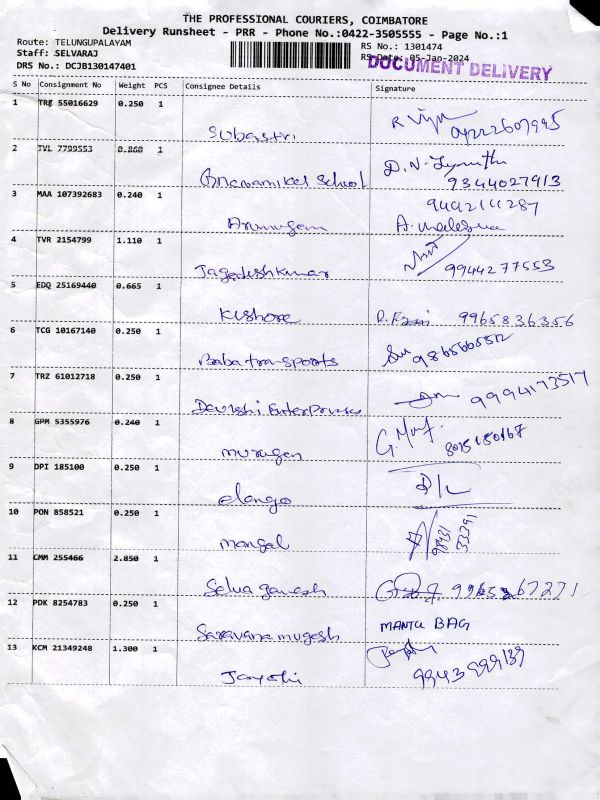 THE PROFESSIONAL COURIERS, COIMBATORE
Delivery Runsheet - PRR - Phone No.:0422-3505555 - Page No.:1
Route: TELUNGUPALAYAM
Staff: SELVARAJ
DRS No.: DCJB130147401
RS No.: 1301474
RS Date: 05-Jan-2024
DOCUMENT DELIVERY
S No Consignment No Weight PCS Consignee Details Signature
1 TRZ 55016629 0.250 1
Subastri R 
2 TVL 7799553 1
School D.N. 9344027913
3 MAA 107392683 0.240 1 9442111287
Arumugam A.
4 TVR 2154799 1.110 1
Jagadeshkumar 9944277553
5 EDQ 25169440 0.665 1
Kishore 9965836356
6 TCG 10167140 0.250 1
Baba transports
7 TRZ 61012718 0.250 1
Enterprises 9994173517
8 GPM 5355976 0.240 1
murugan
9 DPI 185100 0.250 1
elango D/L
10 PON 858521 0.250 1
mangal 98431 33391
11 CMM 255466 2.850 1
Selva ganesh
12 PDK 8254783 0.250 1 MANTU BAG
Saravana mugesh
13 KCM 21349248 1.300 1
9943999139